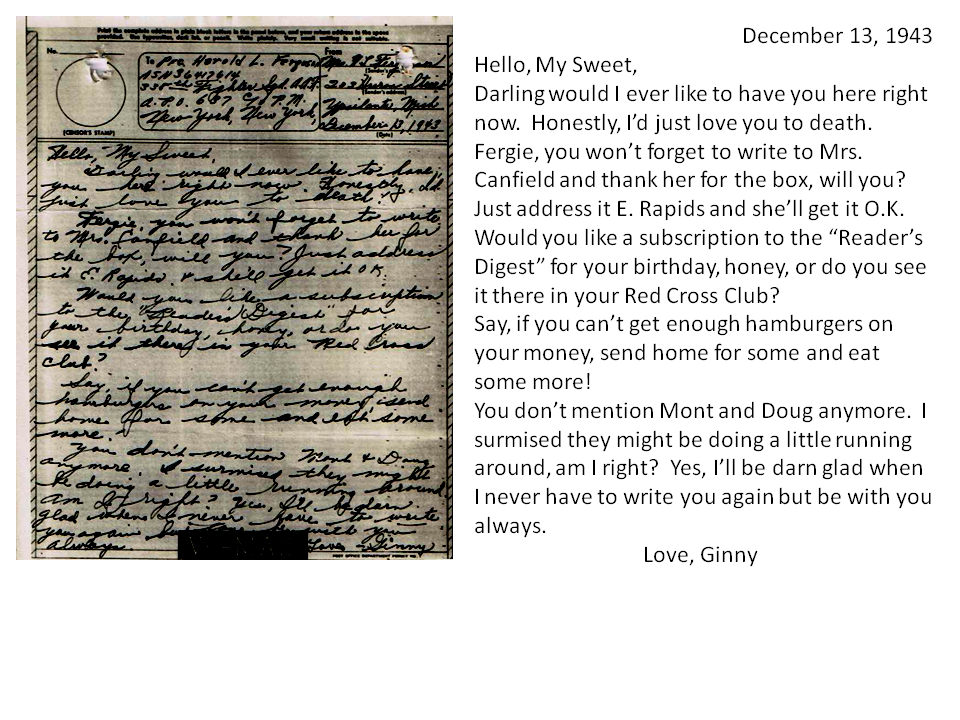 Print the complete address in plain block letters in the panel below, and your return address in the space
provided. Use typewriter, dark ink, or pencil. Write plainly. Very small writing is not suitable.
No.
To Pvt. Harold L. Ferguson
ASN 36412614
335th Fighter Sqd. A.A.F.
A.P.O. 637 C/o P.M.
New York, New York,
[CENSOR'S STAMP]
From
Mrs.
(Sender's name)
Street
(Sender's address)
Ypsilanti, Mich
December 13, 1943
(Date)
Hello, My Sweet,
Darling would I ever like to have
you here right now. Honestly, I'd
just love you to death.
Fergie, you won't forget to write
to Mrs. Canfield and thank her for
the box, will you? Just address
it E. Rapids & she'll get it O.K.
Would you like a subscription
to the "Reader's Digest" for
your birthday, honey, or do you
see it there in your Red Cross
Club?
Say, if you can't get enough
hamburgers on your money, send
home for some and eat some
more.
You don't mention Mont & Doug
anymore. I surmised they might
be doing a little running around
am I right? Yes, I'll be darn
glad when I never have to write
you again but be with you
always. Love - Ginny
V-MAIL
POST OFFICE DEPARTMENT PERMIT NO.
December 13, 1943
Hello, My Sweet,
Darling would I ever like to have you here right
now.  Honestly, I'd just love you to death.
Fergie, you won't forget to write to Mrs.
Canfield and thank her for the box, will you?
Just address it E. Rapids and she'll get it O.K.
Would you like a subscription to the “Reader's
Digest” for your birthday, honey, or do you see
it there in your Red Cross Club?
Say, if you can't get enough hamburgers on
your money, send home for some and eat
some more!
You don't mention Mont and Doug anymore.  I
surmised they might be doing a little running
around, am I right?  Yes, I'll be darn glad when
I never have to write you again but be with you
always.
Love, Ginny